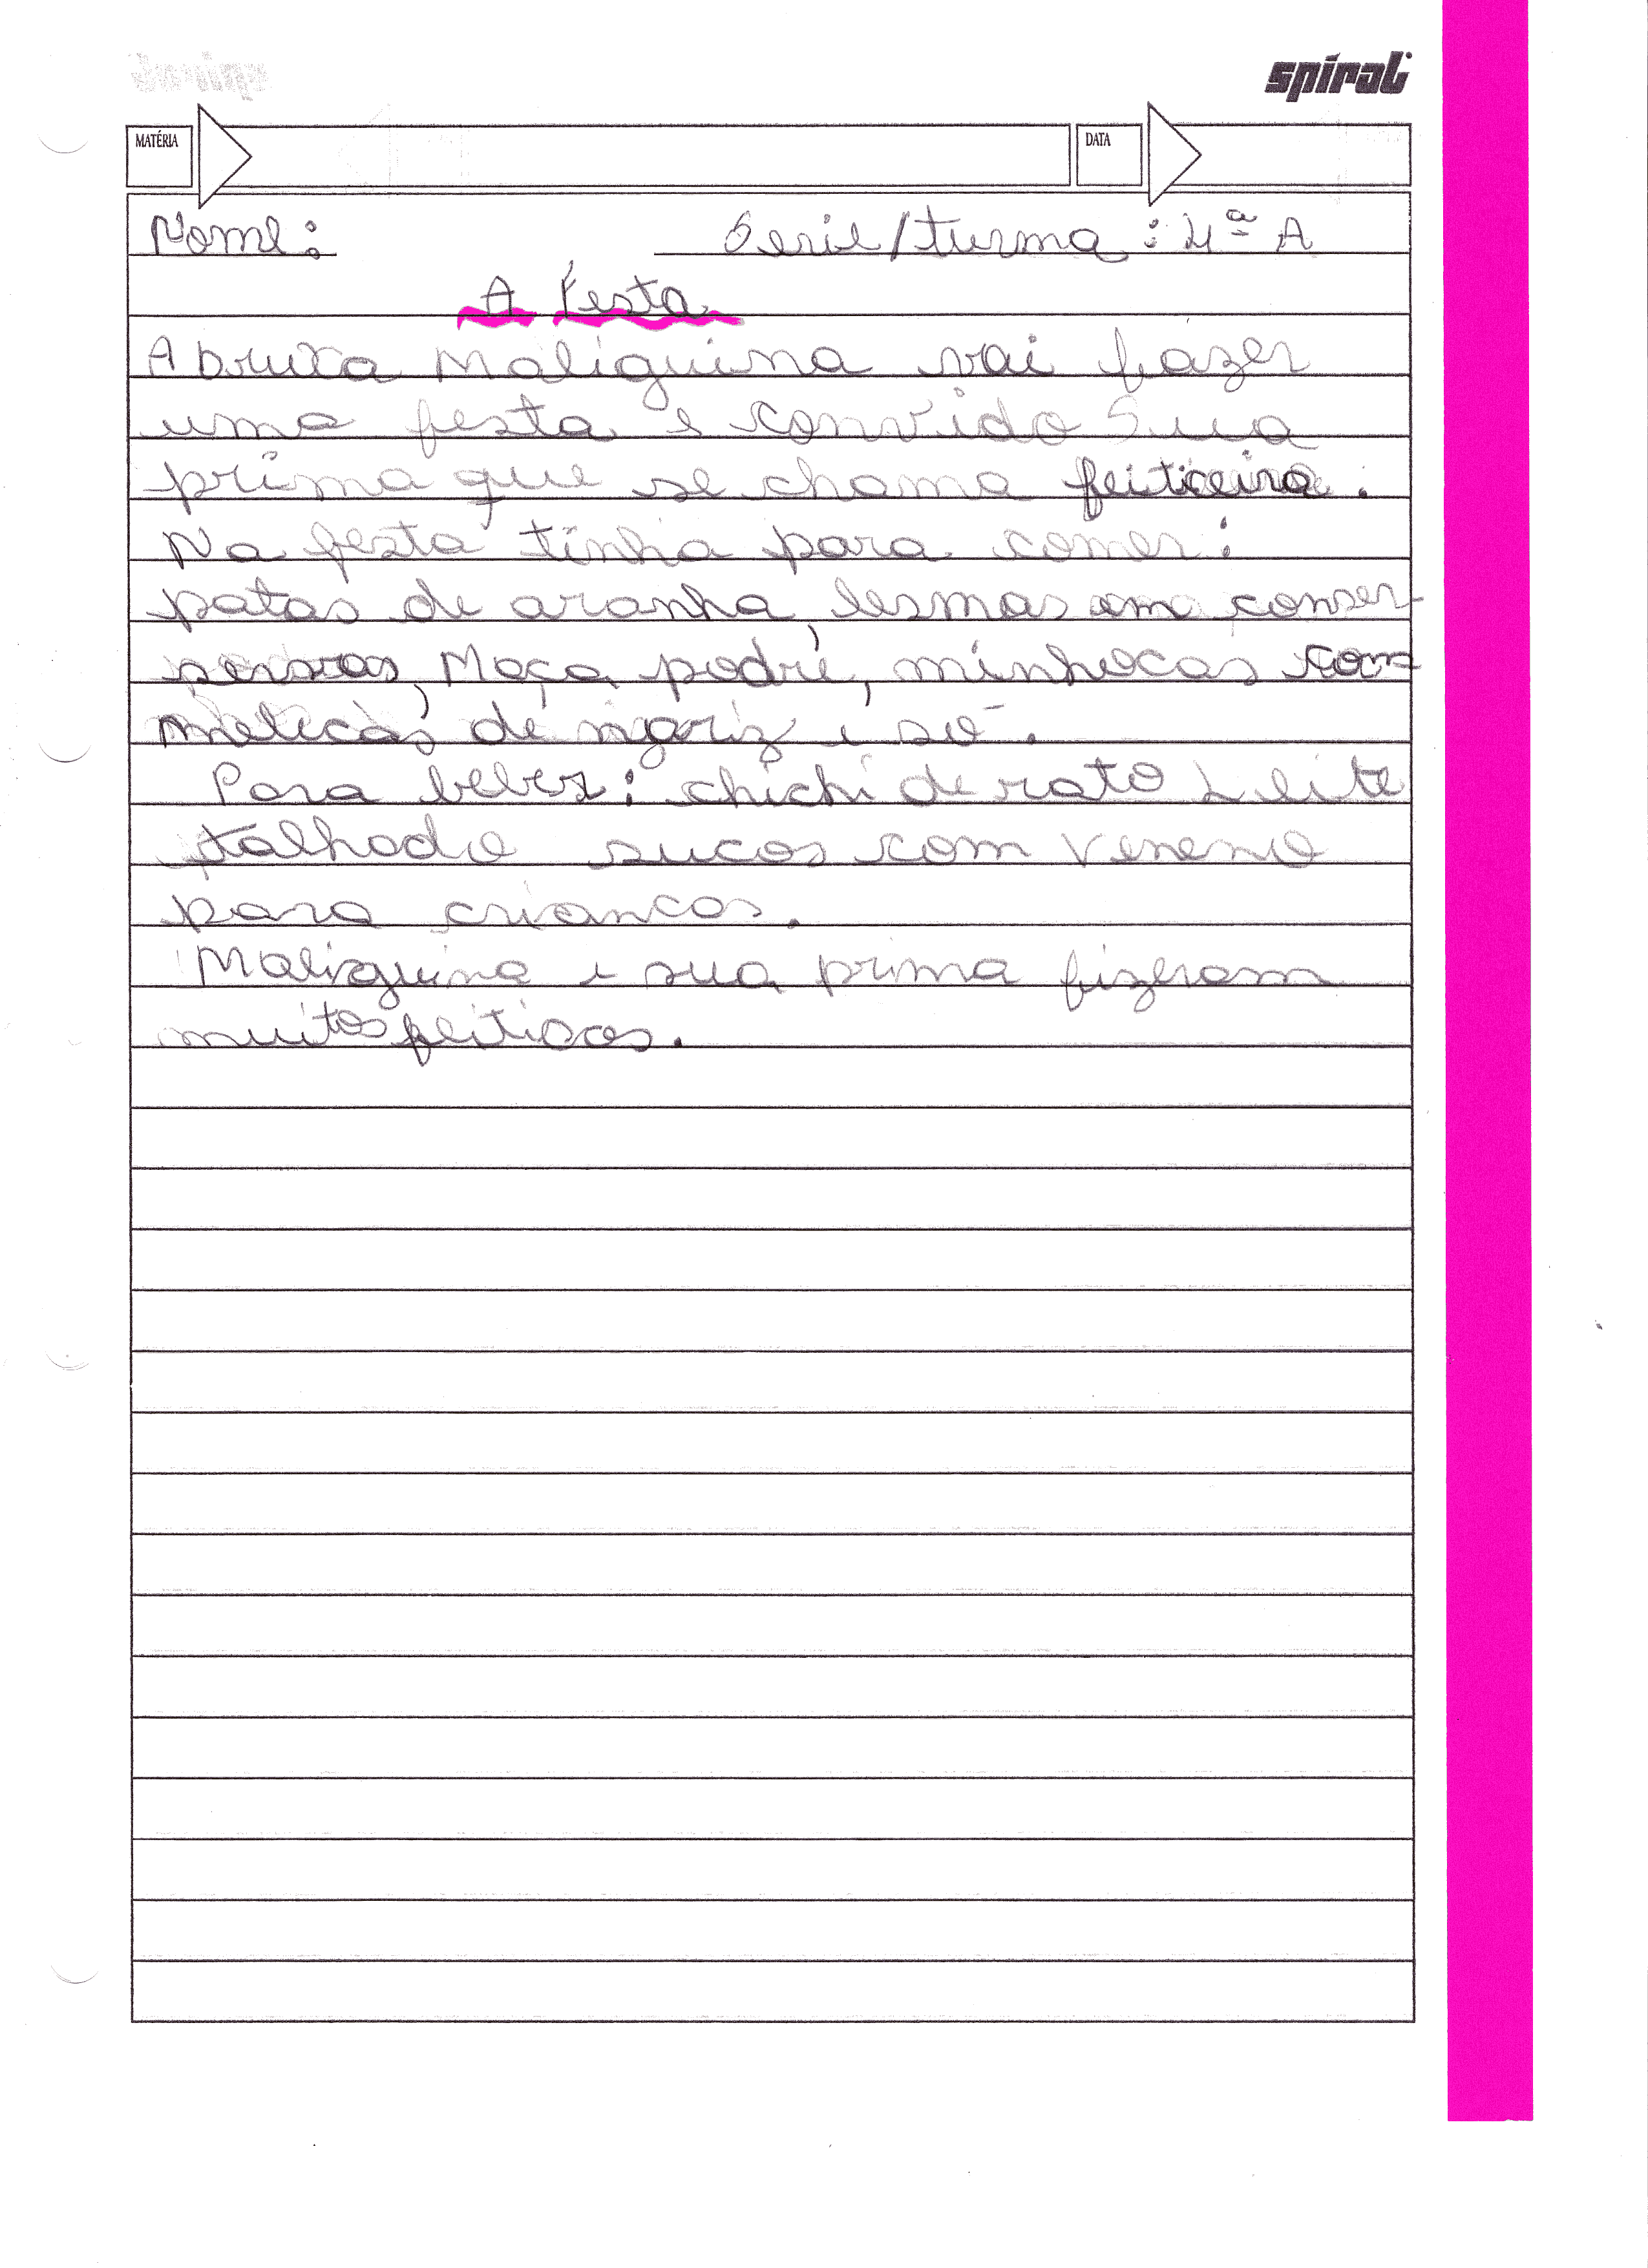 spiral
MATÉRIA DATA
Nome: Serie/turma: 4ª A
A Festa
A bruxa Maliguina vai fazer
uma festa e convido Sua
prima que se chama feiticeira.
Na festa tinha para comer:
patas de aranha, lesmas em conser-
Maça podre, minhocas com
melecas de nariz e só.
Para beber: chichi de rato Leite
talhado sucos com veneno
para criancas.
Maliguina e sua prima fizeram
muitos feiticos.